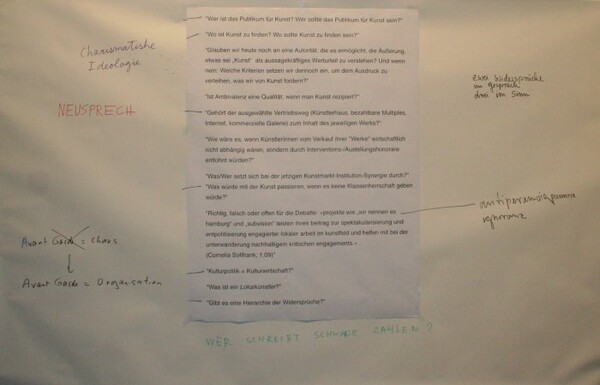 "Wer ist das Publikum für Kunst? Wer sollte das Publikum für Kunst sein?"
"Wo ist Kunst zu finden? Wo sollte Kunst zu finden sein?"
"Glauben wir heute noch an eine Autorität, die es ermöglicht, die Äußerung,
etwas sei „Kunst" als aussagekräftiges Werturteil zu verstehen? Und wenn
nein: Welche Kriterien setzen wir dennoch ein, um dem Ausdruck zu
verleihen, was wir von Kunst fordern?"
"Ist Ambivalenz eine Qualität, wenn man Kunst rezipiert?"
"Gehört der ausgewählte Vertriebsweg (Künstlerhaus, bezahlbare Multiples,
Internet, kommerzielle Galerie) zum Inhalt des jeweiligen Werks?"
"Wie wäre es, wenn KünstlerInnen vom Verkauf ihrer "Werke" wirtschaftlich
nicht abhängig wären, sondern durch Interventions-/Austellungshonorare
entlohnt würden?"
"Was/Wer setzt sich bei der jetzigen Kunstmarkt-Institution-Synergie durch?"
"Was würde mit der Kunst passieren, wenn es keine Klassenherrschaft geben
würde?"
"Richtig, falsch oder offen für die Debatte: »projekte wie „wir nennen es
hamburg" und „subvision" leisten ihren beitrag zur spektakularisierung und
entpolitisierung engagierter lokaler arbeit im kunstfeld und helfen mit bei der
unterwanderung nachhaltigem kritischen engagements.«
(Cornelia Sollfrank, 1,09)"
"Kulturpolitik = Kulturwirtschaft?"
"Was ist ein Lokalkünstler?"
"Gibt es eine Hierarchie der Widersprüche?"
Charismatische
Ideologie
NEUSPRECH
Avant Garde = Chaos
Avant Garde = Organisation
zwei Widersprüche
im gespräch
drei im Sinn
ignoranz
WER SCHREIBT SCHWARZE ZAHLEN?